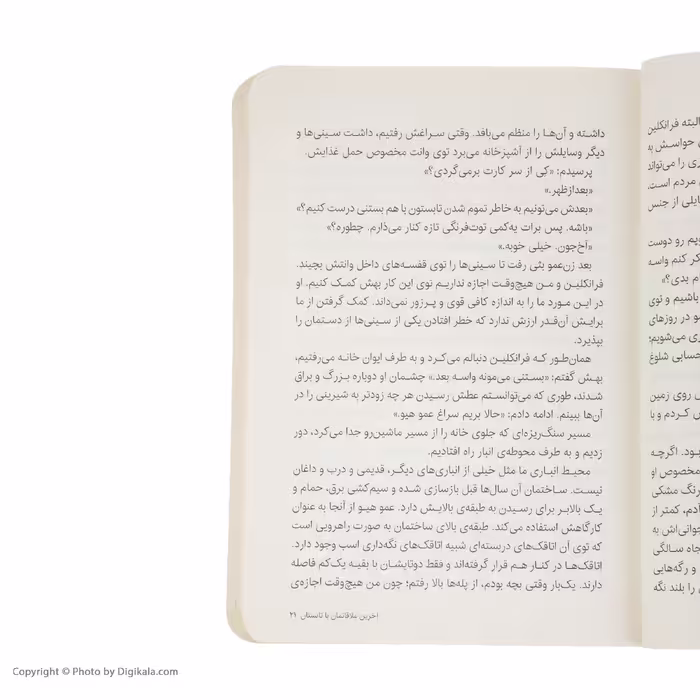 داشته و آن‌ها را منظم می‌بافد. وقتی سراغش رفتیم، داشت سینی‌ها و
دیگر وسایلش را از آشپزخانه می‌برد توی وانت مخصوص حمل غذایش.
پرسیدم: «کِی از سر کارت برمی‌گردی؟»
«بعدازظهر.»
«بعدش می‌تونیم به خاطر تموم شدن تابستون با هم بستنی درست کنیم؟»
«باشه. پس برات یه‌کمی توت‌فرنگی تازه کنار می‌ذارم. چطوره؟»
«آخ‌جون. خیلی خوبه.»
بعد زن‌عمو بئی رفت تا سینی‌ها را توی قفسه‌های داخل وانتش بچیند.
فرانکلین و من هیچ‌وقت اجازه نداریم توی این کار بهش کمک کنیم. او
در این مورد ما را به اندازه کافی قوی و پرزور نمی‌داند. کمک گرفتن از ما
برایش آن‌قدر ارزش ندارد که خطر افتادن یکی از سینی‌ها از دستمان را
بپذیرد.
همان‌طور که فرانکلین دنبالم می‌کرد و به طرف ایوان خانه می‌رفتیم،
بهش گفتم: «بستنی می‌مونه واسه بعد.» چشمان او دوباره بزرگ و براق
شدند، طوری که می‌توانستم عطش رسیدن هر چه زودتر به شیرینی را در
آن‌ها ببینم. ادامه دادم: «حالا بریم سراغ عمو هیو.»
مسیر سنگ‌ریزه‌ای که جلوی خانه را از مسیر ماشین‌رو جدا می‌کرد، دور
زدیم و به طرف محوطه‌ی انبار راه افتادیم.
محیط انباری ما مثل خیلی از انباری‌های دیگر، قدیمی و درب و داغان
نیست. ساختمان آن سال‌ها قبل بازسازی شده و سیم‌کشی برق، حمام و
یک بالابر برای رسیدن به طبقه‌ی بالایش دارد. عمو هیو از آنجا به عنوان
کارگاهش استفاده می‌کند. طبقه‌ی بالای ساختمان به صورت راهرویی است
که توی آن اتاقک‌های دربسته‌ای شبیه اتاقک‌های نگه‌داری اسب وجود دارد.
اتاقک‌ها در کنار هم قرار گرفته‌اند و فقط دوتایشان با بقیه یک‌کم فاصله
دارند. یک‌بار وقتی بچه بودم، از پله‌ها بالا رفتم؛ چون من هیچ‌وقت اجازه‌ی
آخرین ملاقاتمان با تابستان ۲۱
البته فرانکلین
حواسش به
ی را می‌تواند
مردم است.
ایلی از جنس
یم رو دوست
کر کنم واسه
م بدی؟»
باشیم و توی
و در روزهای
ی می‌شویم؛
حسابی شلوغ
روی زمین
کردم و با
ود. اگرچه
مخصوص او
رنگ مشکی
آدم، کمتر از
جوانی‌اش به
جاه سالگی
و رگه‌هایی
را بلند نگه
Copyright © Photo by Digikala.com